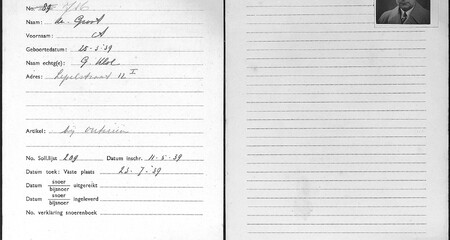 No.
Naam: de Groot
Voornaam: A
Geboortedatum: 20-3-'39
Naam echtg(e): G. Mol
Adres: Lepelstraat 12 I
Artikel: bij
No. Soll.lijst 209 Datum inschr. 11-5-'39
Datum toek: Vaste plaats 23-7-'39
Datum snoer
bijsnoer uitgereikt
Datum snoer
bijsnoer ingeleverd
No. verklaring snoerenboek